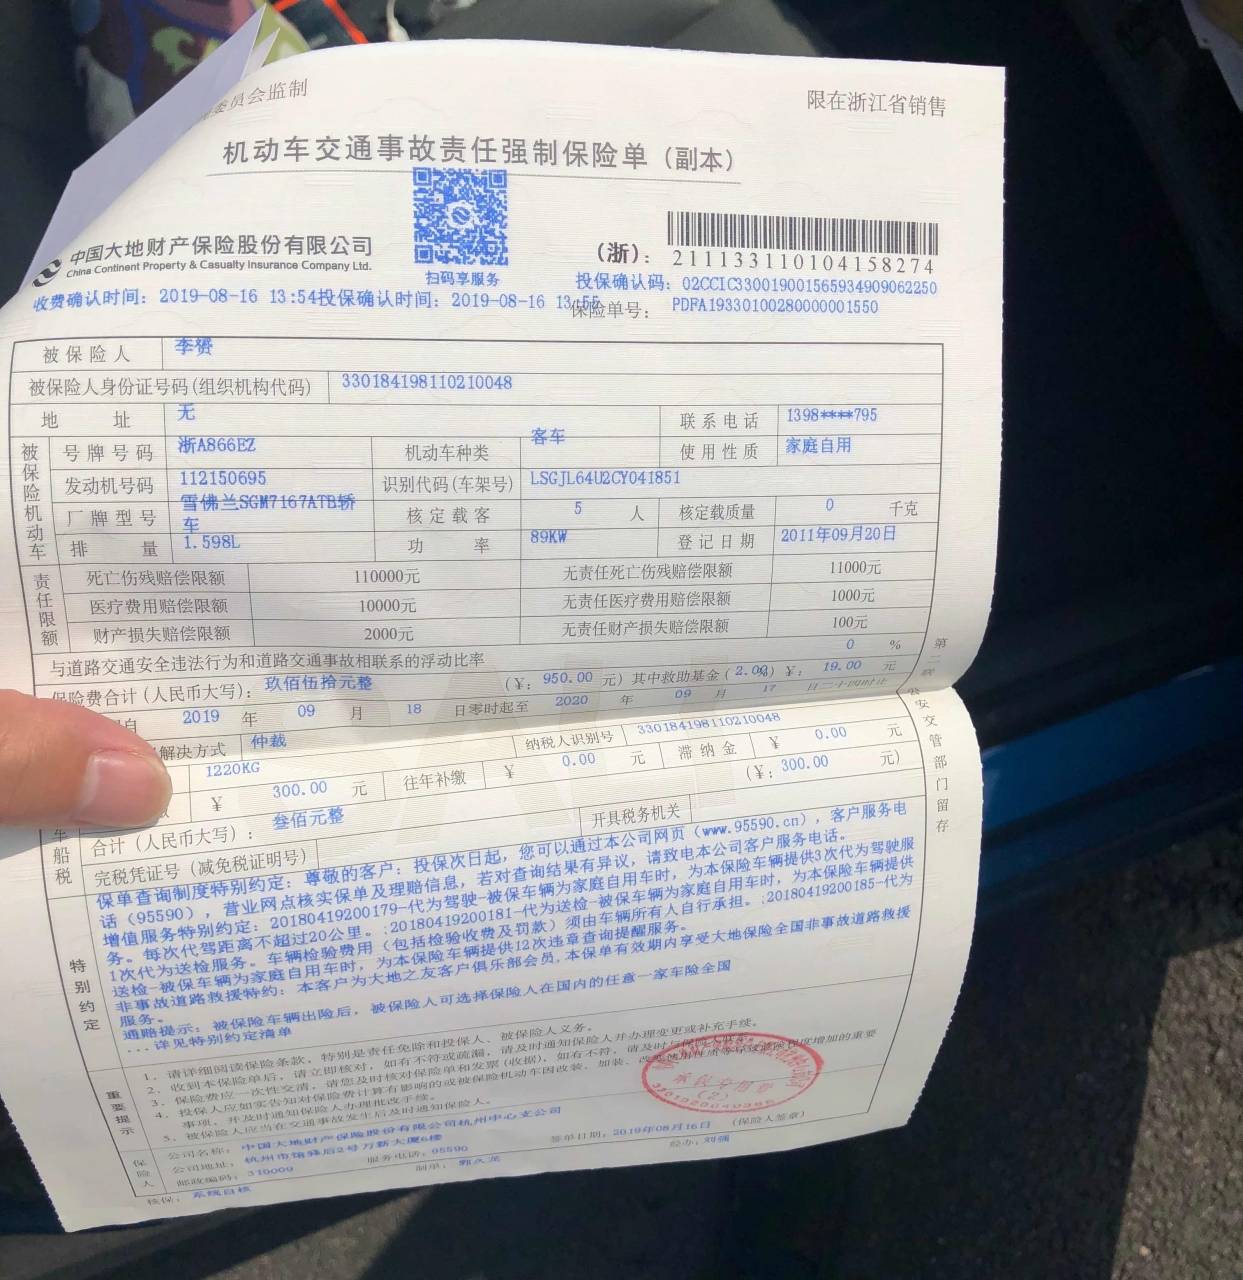 委员会监制
限在浙江省销售
机动车交通事故责任强制保险单（副本）
中国大地财产保险股份有限公司
China Continent Property & Casualty Insurance Company Ltd.
扫码享服务
（浙）：
21113311010415827​4
投保确认码：02CCIC330019001565934909062250
收费确认时间：2019-08-16 13:54投保确认时间：2019-08-16 13:55
保险单号：PDFA19330100280000001550
被保险人 李赟
被保险人身份证号码(组织机构代码) 330184198110210048
地址 无 联系电话 1398****795
被保险机动车
号牌号码 浙A866EZ 机动车种类 客车 使用性质 家庭自用
发动机号码 112150695 识别代码(车架号) LSGJL64U2CY041851
厂牌型号 雪佛兰SGM7167ATB轿车 核定载客 5 人 核定载质量 0 千克
排量 1.598L 功率 89KW 登记日期 2011年09月20日
责任限额
死亡伤残赔偿限额 110000元 无责任死亡伤残赔偿限额 11000元
医疗费用赔偿限额 10000元 无责任医疗费用赔偿限额 1000元
财产损失赔偿限额 2000元 无责任财产损失赔偿限额 100元
与道路交通安全违法行为和道路交通事故相联系的浮动比率 0 %
保险费合计(人民币大写)：玖佰伍拾元整 （￥：950.00 元）其中救助基金（2.00%）￥：19.00 元
自 2019 年 09 月 18 日零时起至 2020 年 09 月 17 日二十四时止
解决方式 仲裁
1220KG 纳税人识别号 330184198110210048
￥ 300.00 元 往年补缴 ￥ 0.00 元 滞纳金 ￥ 0.00 元
合计（人民币大写）：叁佰元整 （￥：300.00 元）
车船税
完税凭证号（减免税证明号） 开具税务机关
第二联 公安交管部门留存
特别约定
保单查询制度特别约定：尊敬的客户：投保次日起，您可以通过本公司网页（www.95590.cn），客户服务电
话（95590），营业网点核实保单及理赔信息，若对查询结果有异议，请致电本公司客户服务电话。
增值服务特别约定：20180419200179-代为驾驶-被保车辆为家庭自用车时，为本保险车辆提供3次代为驾驶服
务。每次代驾距离不超过20公里。;20180419200181-代为送检-被保车辆为家庭自用车时，为本保险车辆提供
1次代为送检服务。车辆检验费用（包括检验收费及罚款）须由车辆所有人自行承担。;20180419200185-代为
送检-被保车辆为家庭自用车时，为本保险车辆提供12次违章查询提醒服务。
非事故道路救援特约：本客户为大地之友客户俱乐部会员,本保单有效期内享受大地保险全国非事故道路救援
服务。
通赔提示：被保险车辆出险后，被保险人可选择保险人在国内的任意一家车险全国
...详见特别约定清单
重要提示
1. 请详细阅读保险条款，特别是责任免除和投保人、被保险人义务。
2. 收到本保险单后，请立即核对，如有不符或疏漏，请及时通知保险人并办理变更或补充手续。
3. 保险费应一次性交清，请您及时核对保险单和发票(收据)，如有不符，请及时与保险人联系。
4. 投保人应如实告知对保险费计算有影响的或被保险机动车因改装、加装、改变使用性质等导致危险程度增加的重要
事项，并及时通知保险人办理批改手续。
5. 被保险人应当在交通事故发生后及时通知保险人。
保险人
公司名称：中国大地财产保险股份有限公司杭州中心支公司
公司地址：杭州市馆驿后2号万新大厦6楼
邮政编码：310009 服务电话：95590 签单日期：2019年08月16日 （保险人签章）
核保：系统自核 制单：郭久龙 经办：刘强